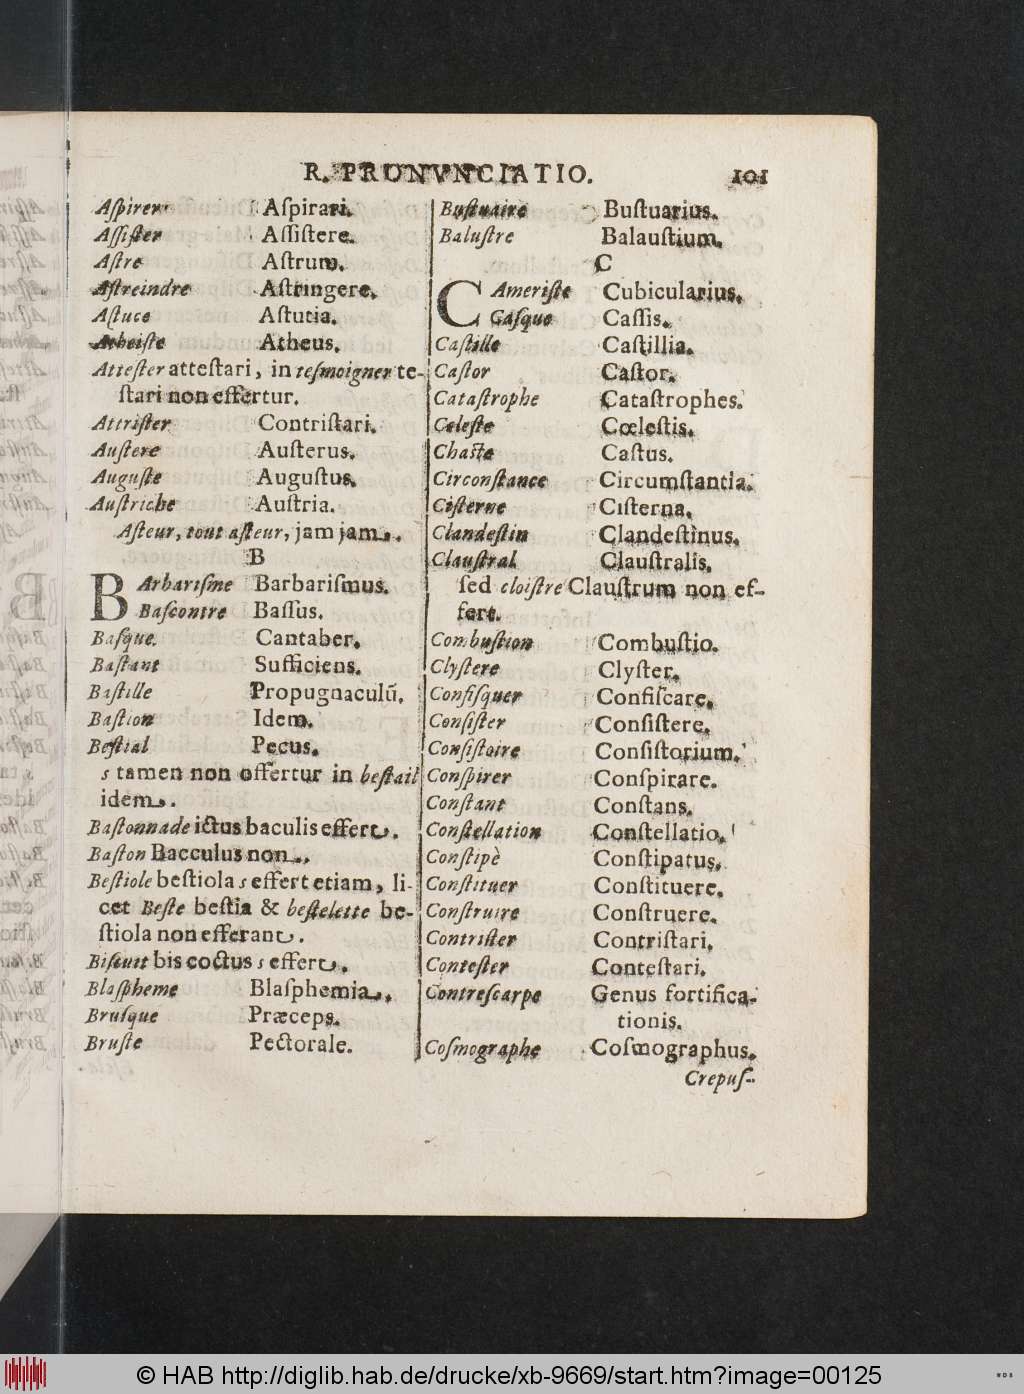 R. PRONVNCIATIO. 101
Aſpirer Aſpirari.
Aſſiſter Aſſiſtere.
Aſtre Aſtrum.
Aſtreindre Aſtringere.
Aſtuce Aſtutia.
Atheiſte Atheus.
Atteſter atteſtari, in teſmoigner te-
ſtari non effertur.
Attriſter Contriſtari.
Auſtere Auſterus.
Auguſte Auguſtus.
Auſtriche Auſtria.
Aſteur, tout aſteur, jam jam.
B
BArbariſme Barbariſmus.
Baſcontre Baſſus.
Baſque. Cantaber.
Baſtant Sufficiens.
Baſtille Propugnaculũ.
Baſtion Idem.
Beſtial Pecus.
s tamen non offertur in beſtail
idem.
Baſtonnade ictus baculis effert.
Baſton Bacculus non.
Beſtiole beſtiola s effert etiam, li-
cet Beſte beſtia & beſtelette be-
ſtiola non efferant.
Biſcuit bis coctus s effert.
Blaſpheme Blaſphemia.
Bruſque Præceps.
Bruſte Pectorale.
Buſtuaire Buſtuarius.
Baluſtre Balauſtium.
C
CAmeriſte Cubicularius.
Caſque Caſſis.
Caſtille Caſtillia.
Caſtor Caſtor.
Cataſtrophe Cataſtrophes.
Celeſte Cœleſtis.
Chaſte Caſtus.
Circonſtance Circumſtantia.
Ciſterne Ciſterna.
Clandeſtin Clandeſtinus.
Clauſtral Clauſtralis.
ſed cloiſtre Clauſtrum non ef-
fert.
Combuſtion Combuſtio.
Clyſtere Clyſter.
Confiſquer Confiſcare.
Conſiſter Conſiſtere.
Conſiſtoire Conſiſtorium.
Conſpirer Conſpirare.
Conſtant Conſtans.
Conſtellation Conſtellatio.
Conſtipè Conſtipatus.
Conſtituer Conſtituere.
Conſtruire Conſtruere.
Contriſter Contriſtari.
Conteſter Conteſtari.
Contreſcarpe Genus fortifica-
tionis.
Coſmographe Coſmographus.
Crepuſ-
© HAB http://diglib.hab.de/drucke/xb-9669/start.htm?image=00125